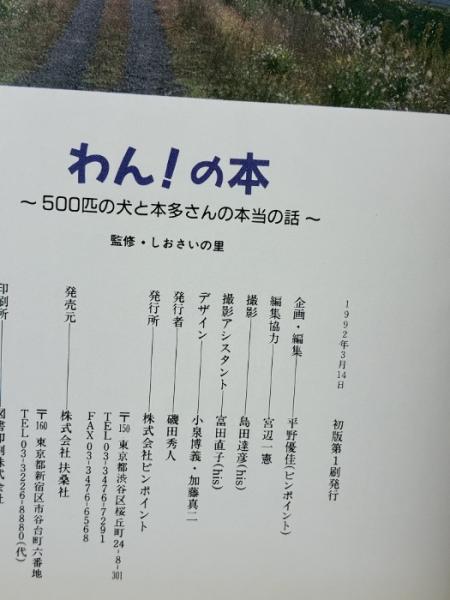 わん!の本
~500匹の犬と本多さんの本当の話~
監修・しおさいの里
1992年3月14日 初版第1刷発行
企画・編集 平野優佳(ピンポイント)
編集協力 宮辺一憲
撮影 島田達彦(his)
撮影アシスタント 富田直子(his)
デザイン 小泉博義・加藤真二
発行者 磯田秀人
発行所 株式会社ピンポイント
〒150 東京都渋谷区桜丘町24-8-301
TEL03-3476-7291
FAX03-3476-6568
発売元 株式会社 扶桑社
〒160 東京都新宿区市谷台町六番地
TEL03-3226-8880(代)
印刷所 図書印刷株式会社